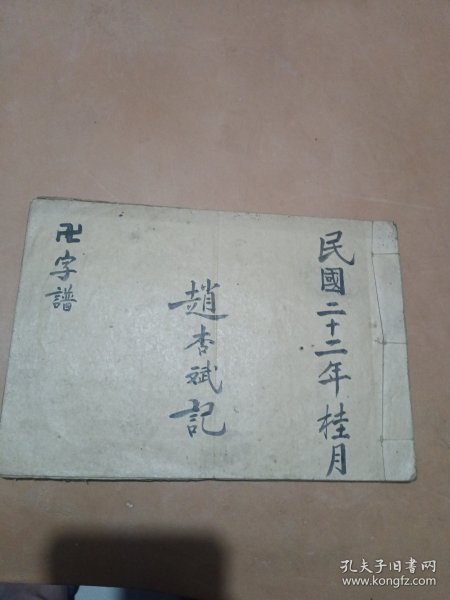 民國二十二年桂月
趙杏斌記
卍字譜
孔夫子旧书网
www.kongfz.com